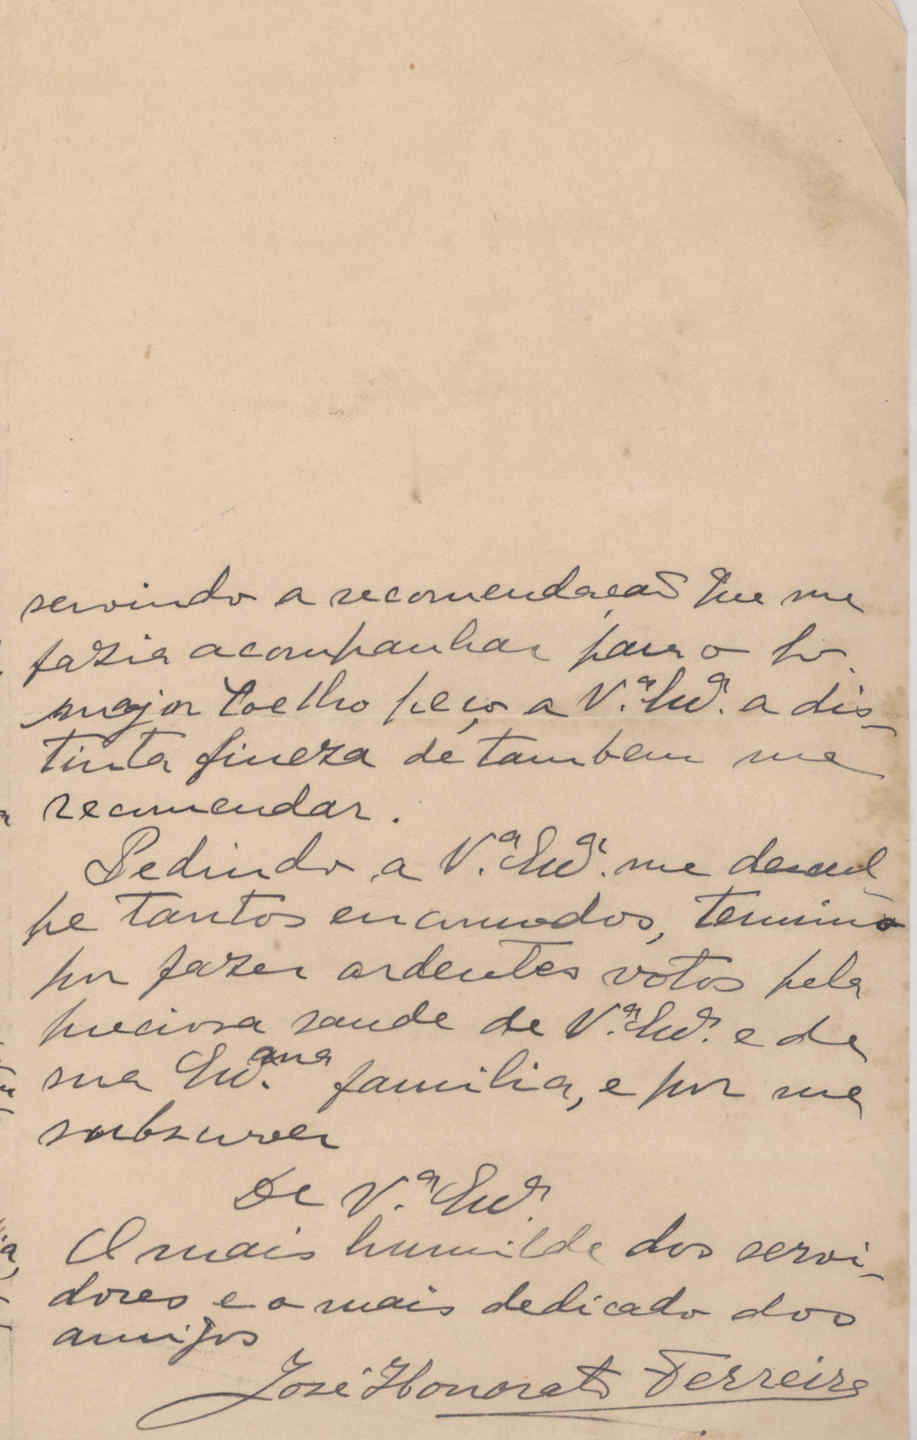 servindo a recomendação que me
fazia acompanhar para o Sr.
major Coelho peço a V.ª Exª. a dis-
tinta fineza de tambem me
recomendar.
Pedindo a V.ª Exª. me descul-
pe tantos encomodos, termino
por fazer ardentes votos pela
preciosa saude de V.ª Exª. e da
sua Ex.ma familia, e por me
subscrever
De V.ª Exª.
O mais humilde dos servi-
dores e o mais dedicado dos
amigos
José Honorato Ferreira